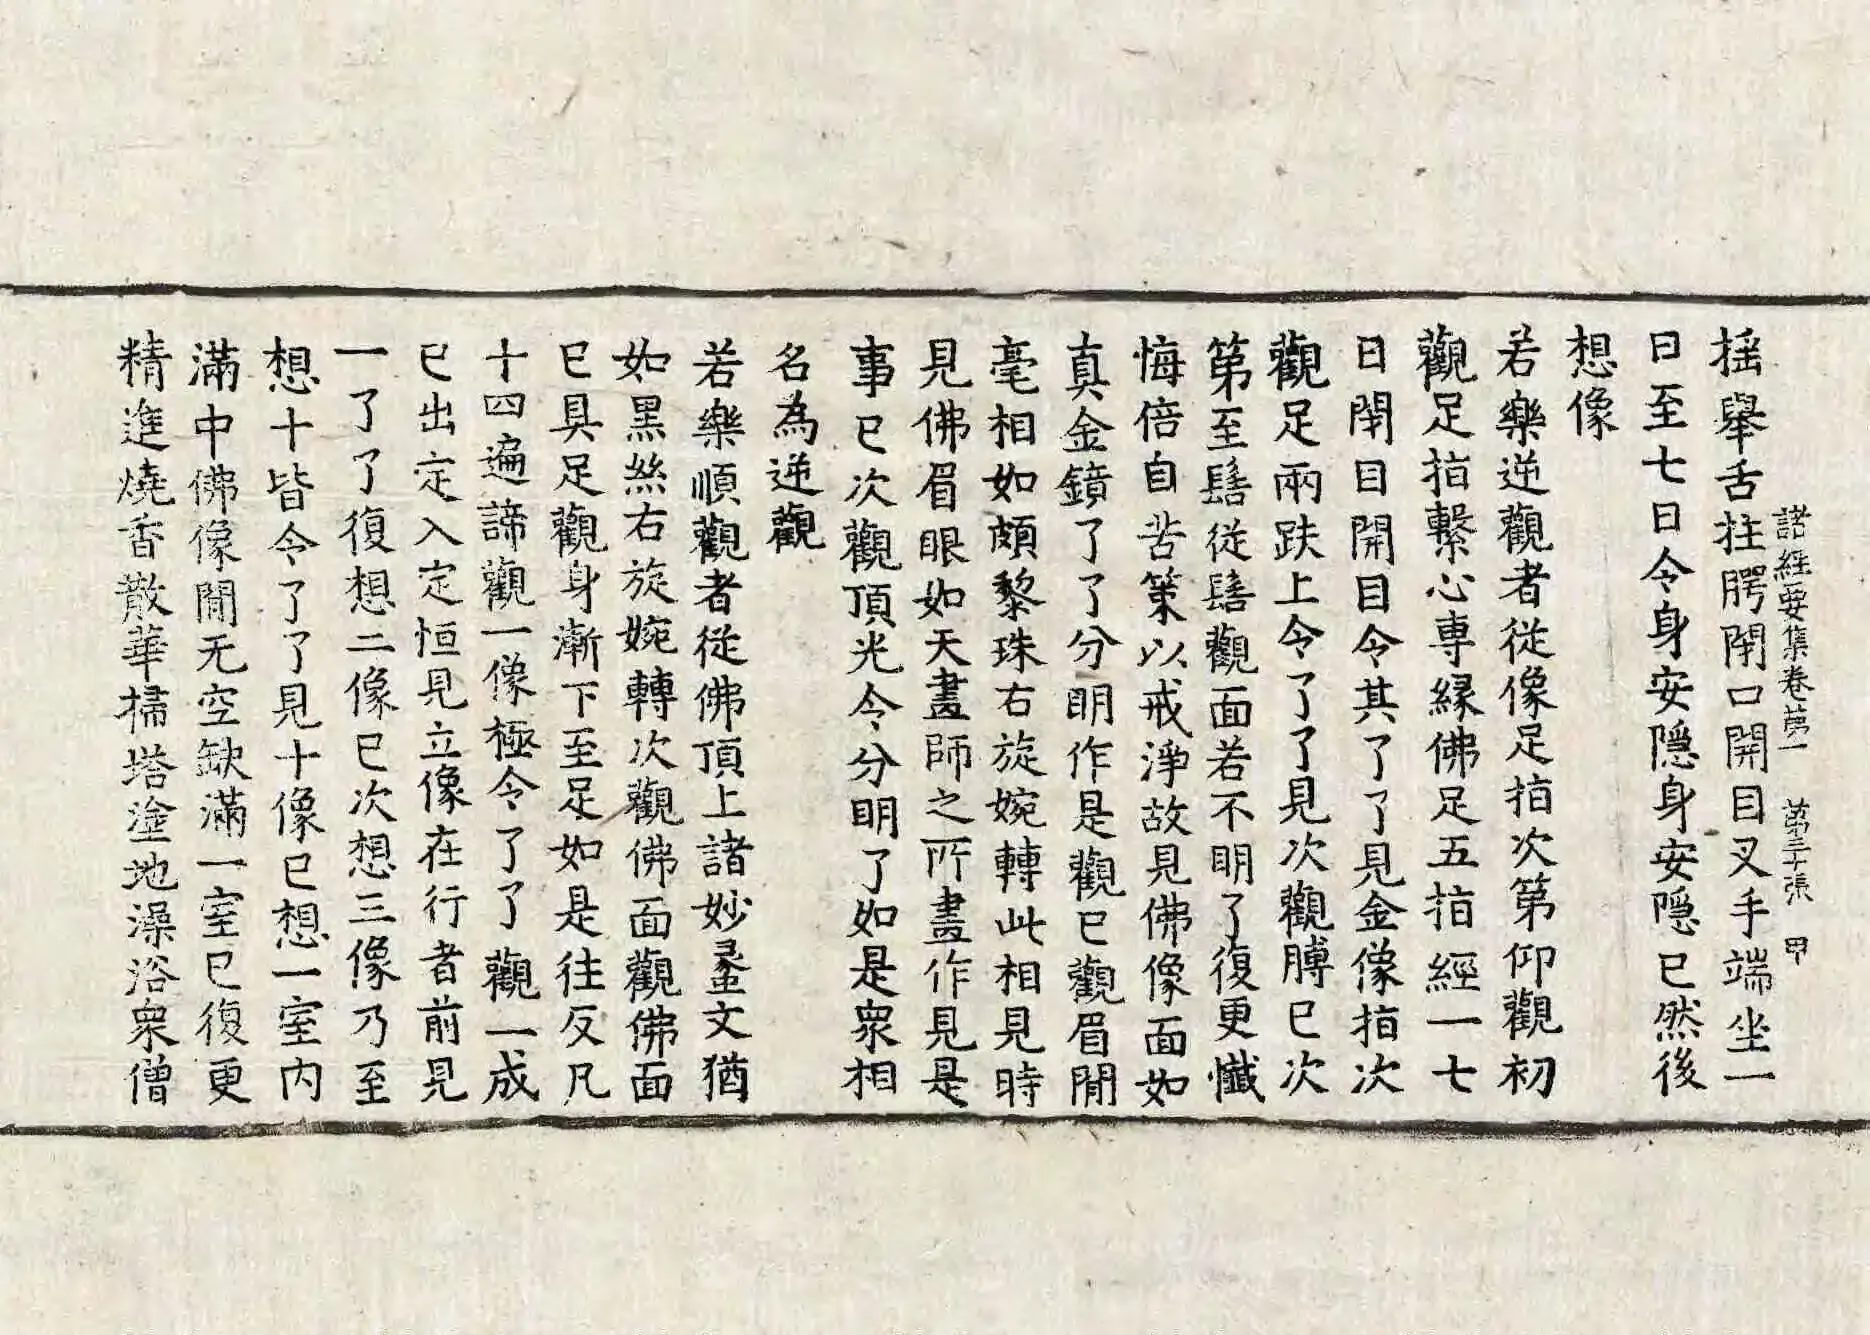 諸經要集卷第一 第三十張 甲
揺舉舌拄腭閇口開目叉手端坐一
日至七日令身安隱身安隱已然後
想像
若樂逆觀者從像足指次第仰觀初
觀足指繫心專緣佛足五指經一七
日閇目開目令其了了見金像指次
觀足兩趺上令了了見次觀膞已次
第至髻從髻觀面若不明了復更懺
悔倍自苦策以戒淨故見佛像面如
真金鏡了了分明作是觀已觀眉間
毫相如頗黎珠右旋婉轉此相見時
見佛眉眼如天畫師之所畫作見是
事已次觀頂光令分明了如是衆相
名為逆觀
若樂順觀者從佛頂上諸妙螺文猶
如黑絲右旋婉轉次觀佛面觀佛面
已具足觀身漸下至足如是往反凡
十四遍諦觀一像極令了了觀一成
已出定入定恒見立像在行者前見
一了了復想二像已次想三像乃至
想十皆令了了見十像已想一室内
滿中佛像間无空缺滿一室已復更
精進燒香散華掃塔塗地澡浴衆僧